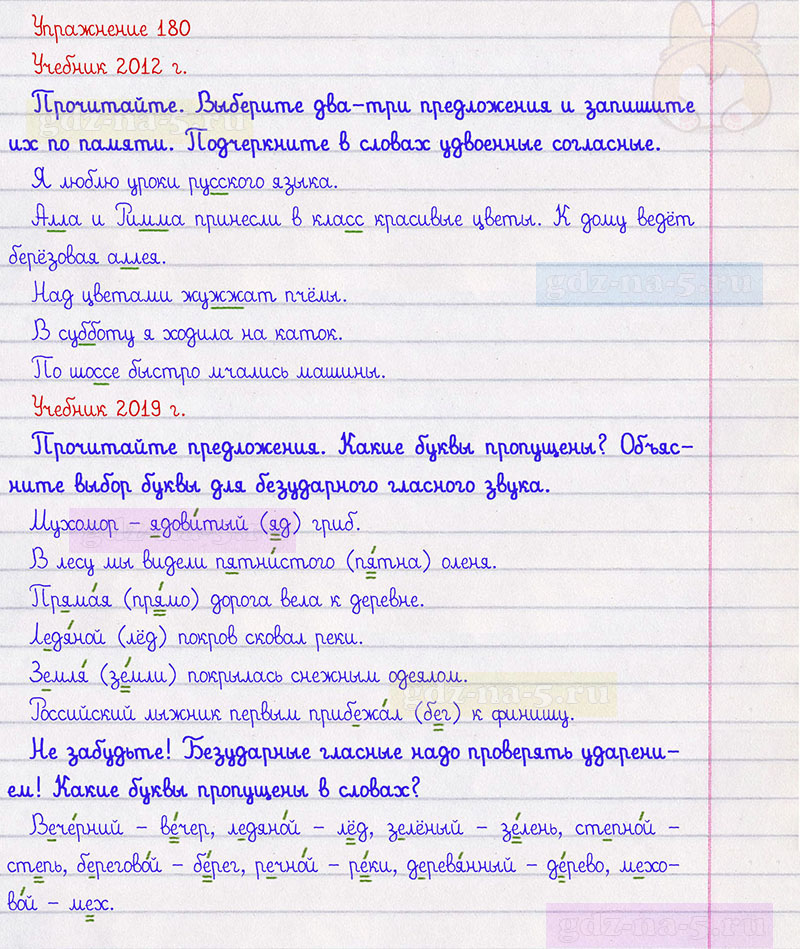 Упражнение 180
Учебник 2012 г.
Прочитайте. Выберите два-три предложения и запишите
их по памяти. Подчеркните в словах удвоенные согласные.
gdz-na-5.ru
Я люблю уроки русского языка.
Алла и Римма принесли в класс красивые цветы. К дому ведёт
берёзовая аллея.
gdz-na-5.ru
Над цветами жужжат пчёлы.
В субботу я ходила на каток.
По шоссе быстро мчались машины.
Учебник 2019 г.
Прочитайте предложения. Какие буквы пропущены? Объяс-
ните выбор буквы для безударного гласного звука.
Мухомор – ядови́тый (яд) гриб.
gdz-na-5.ru
В лесу мы видели пятни́стого (пя́тна) оленя.
Пряма́я (пря́мо) дорога вела к деревне.
Ледя́ной (лёд) покров сковал реки.
Земля́ (зе́мли) покрылась снежным одеялом.
gdz-na-5.ru
Российский лыжник первым прибежа́л (бег) к финишу.
Не забудьте! Безударные гласные надо проверять ударени-
ем! Какие буквы пропущены в словах?
Вече́рний – ве́чер, ледяно́й – лёд, зелёный – зе́лень, степно́й –
степь, берегово́й – бе́рег, речно́й – ре́ки, деревя́нный – де́рево, мехо-
во́й – мех.
gdz-na-5.ru